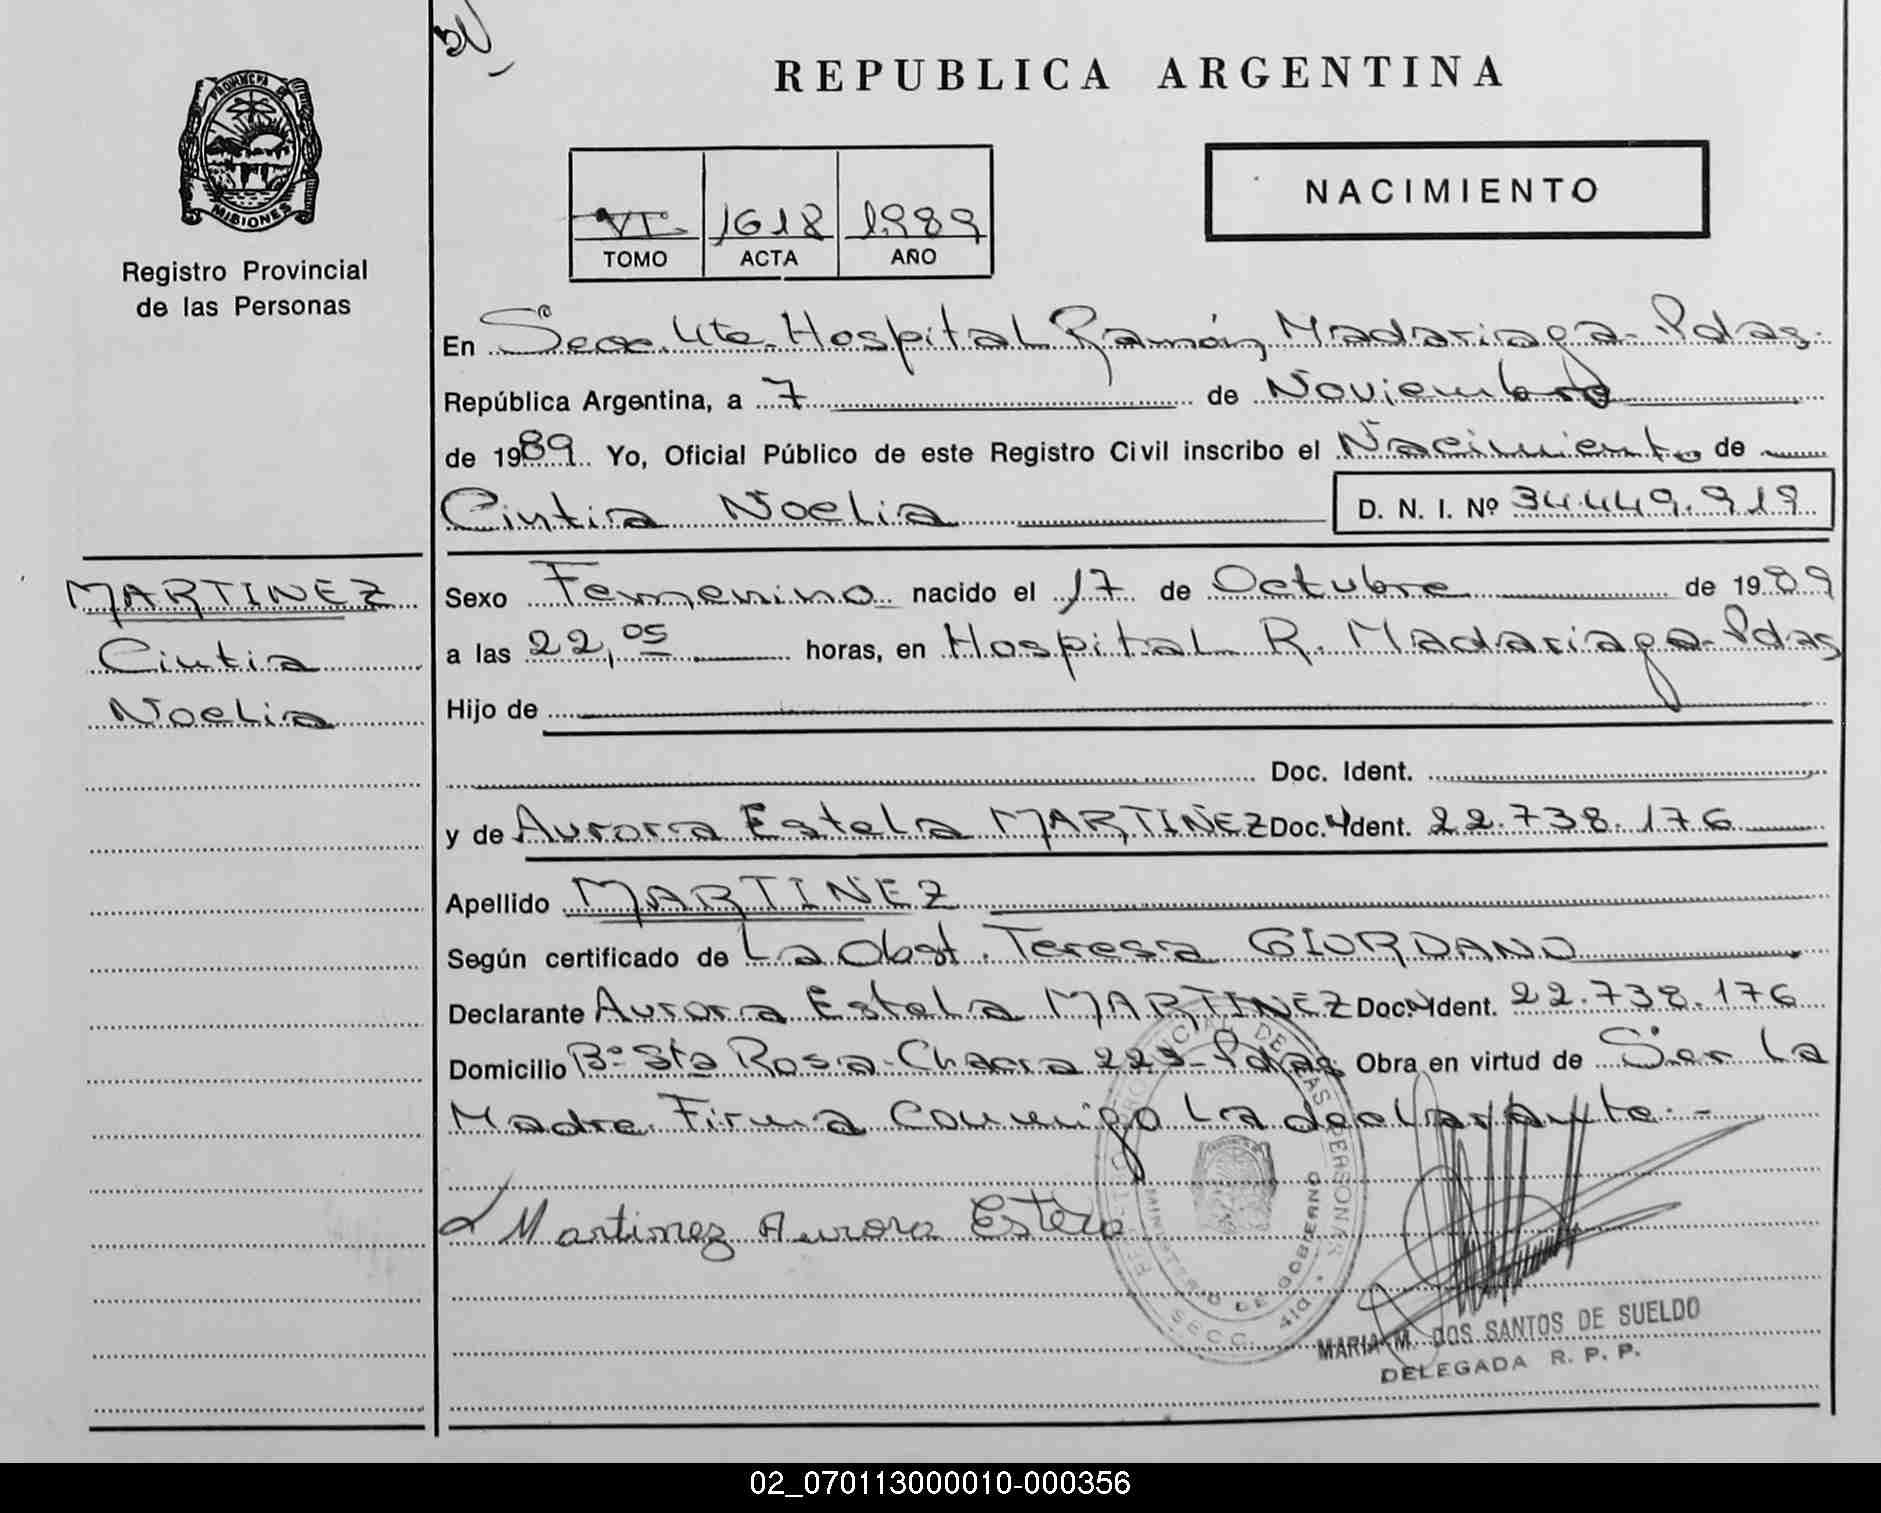 REPUBLICA ARGENTINA
PROVINCIA DE
MISIONES
Registro Provincial
de las Personas
NACIMIENTO
VI 1618 1989
TOMO ACTA AÑO
En Secc. 4ta. Hospital Ramón Madariaga - Pdas.
República Argentina, a 7 de Noviembre
de 1989 Yo, Oficial Público de este Registro Civil inscribo el Nacimiento de
Cintia Noelia D. N. I. Nº 34.449.919
MARTINEZ
Cintia
Noelia
Sexo Femenino nacido el 17 de Octubre de 1989
a las 22,05 horas, en Hospital R. Madariaga - Pdas
Hijo de
Doc. Ident.
y de Aurora Estela MARTINEZ Doc. Ident. 22.738.176
Apellido MARTINEZ
Según certificado de La Obst. Teresa GIORDANO
Declarante Aurora Estela MARTINEZ Doc. Ident. 22.738.176
Domicilio Bº Sta Rosa - Chacra 223 - Pdas Obra en virtud de Ser La
Madre. Firma Conmigo La declarante. -
Martinez Aurora Estela
MINISTERIO DE GOBIERNO
SECC. 4ta.
MARIA M. DOS SANTOS DE SUELDO
DELEGADA R. P. P.
02_070113000010-000356